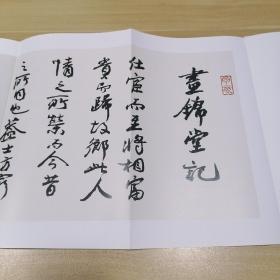 晝錦堂記
仕宦而至將相富
貴而歸故鄉此人
情之所榮而今昔
之所同也蓋士方窮